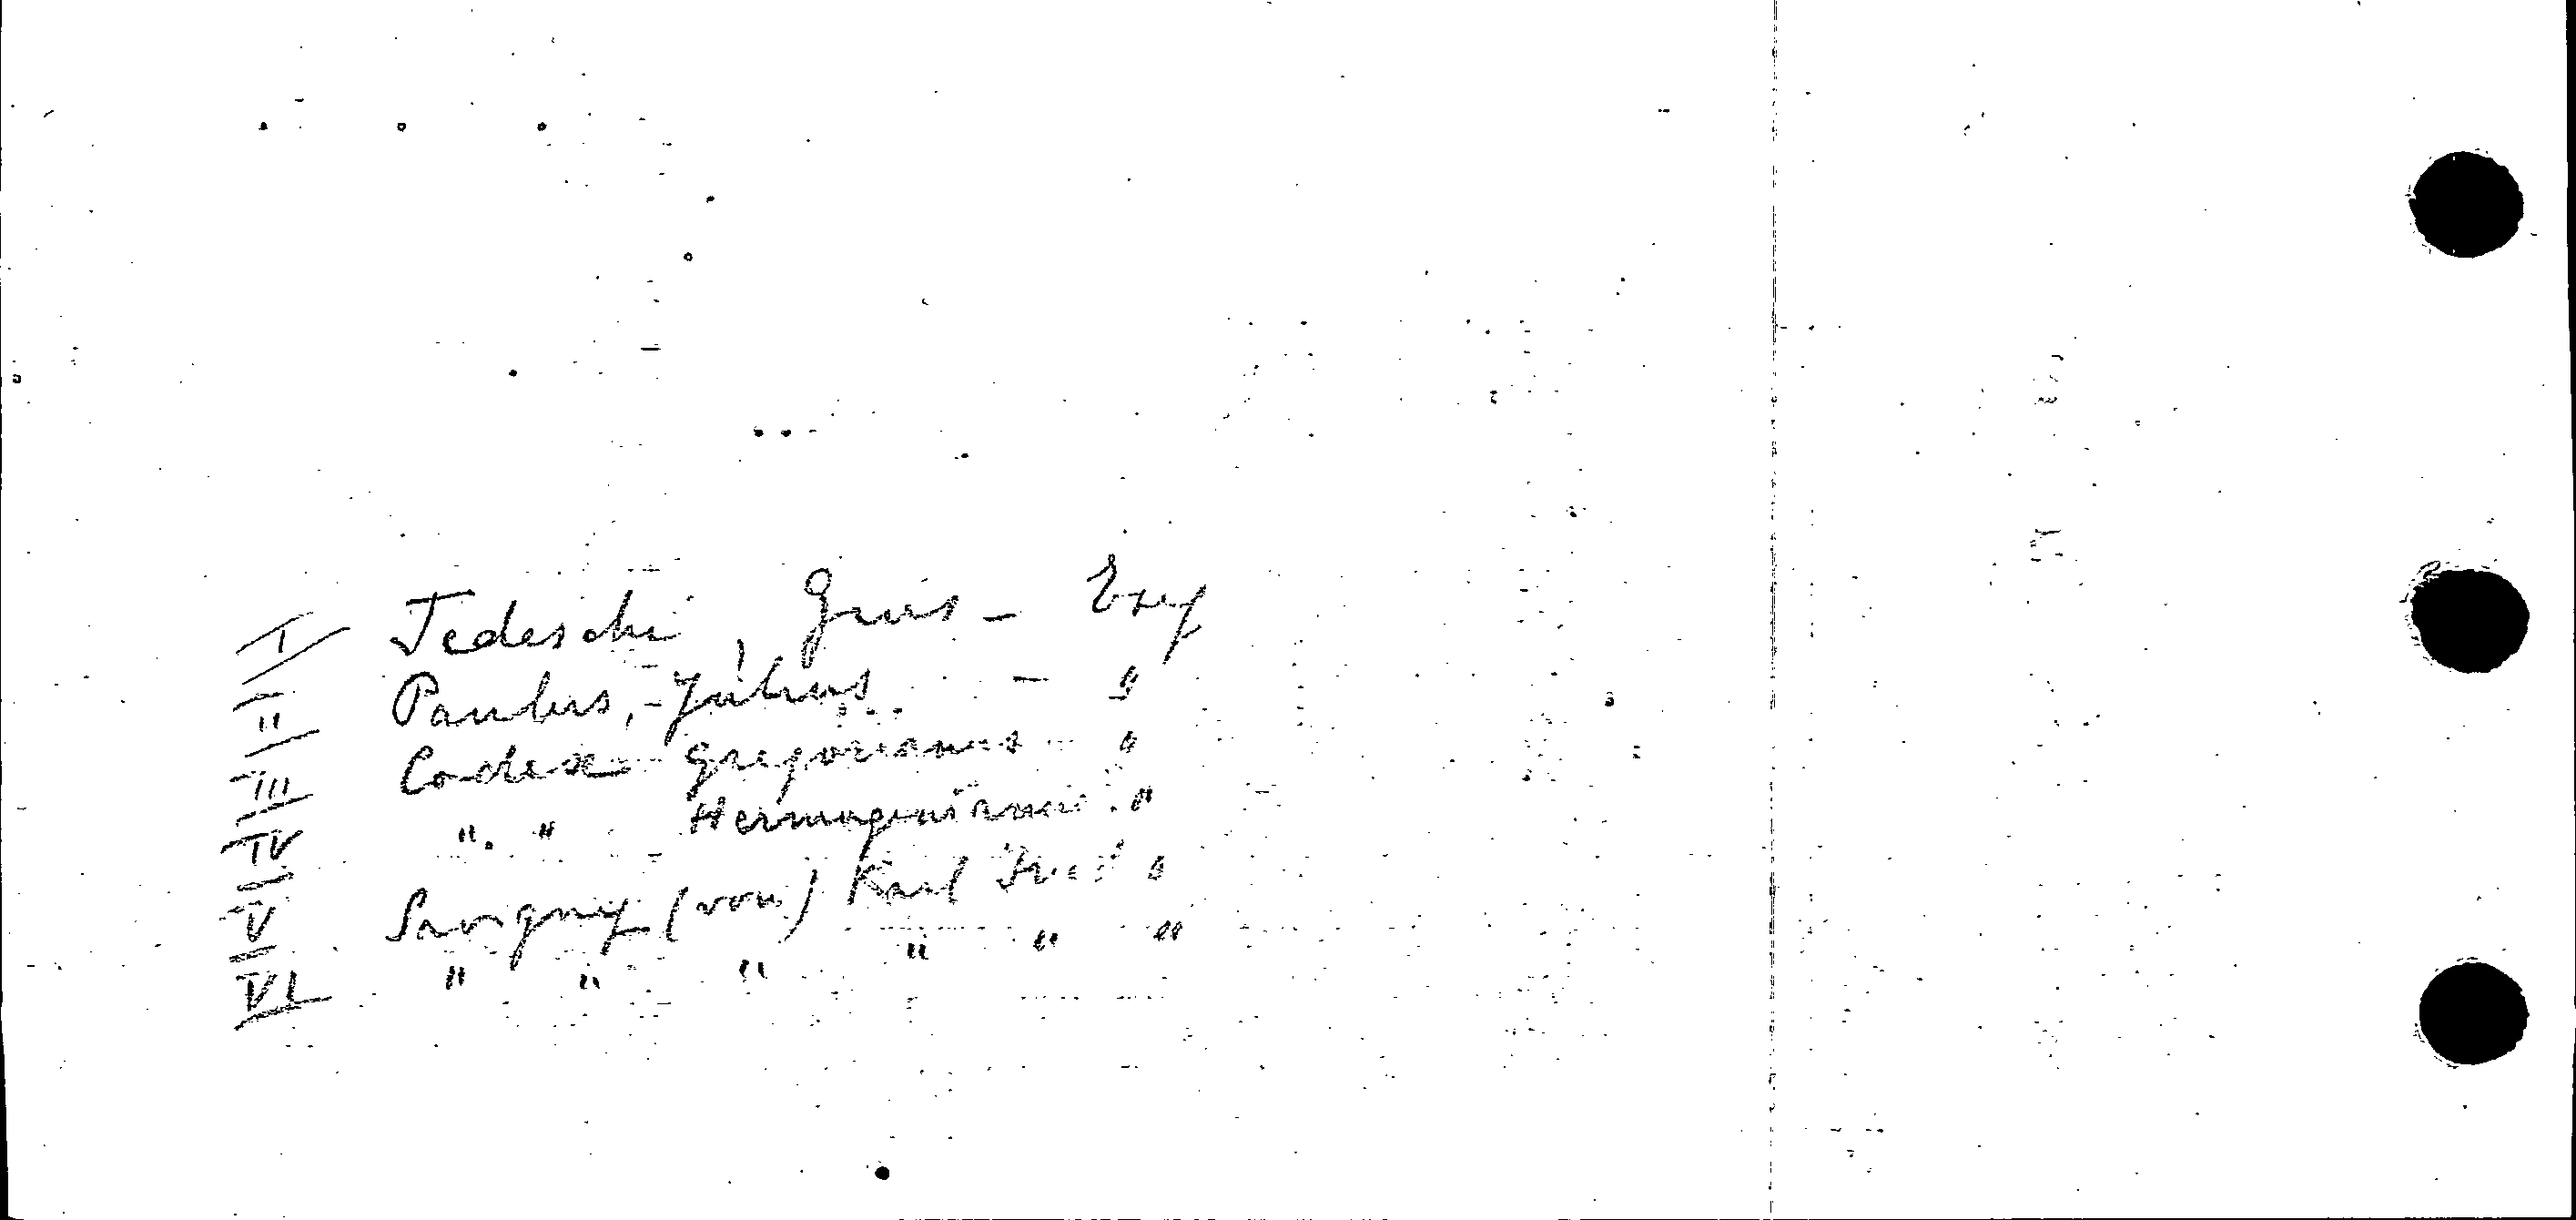 I Tedeschi, Gius -
II Paulus, Julius - "
III Codex Gregorianus - "
IV " " Hermogenianus "
V Savigny (von) Karl "
VI " " " " " "